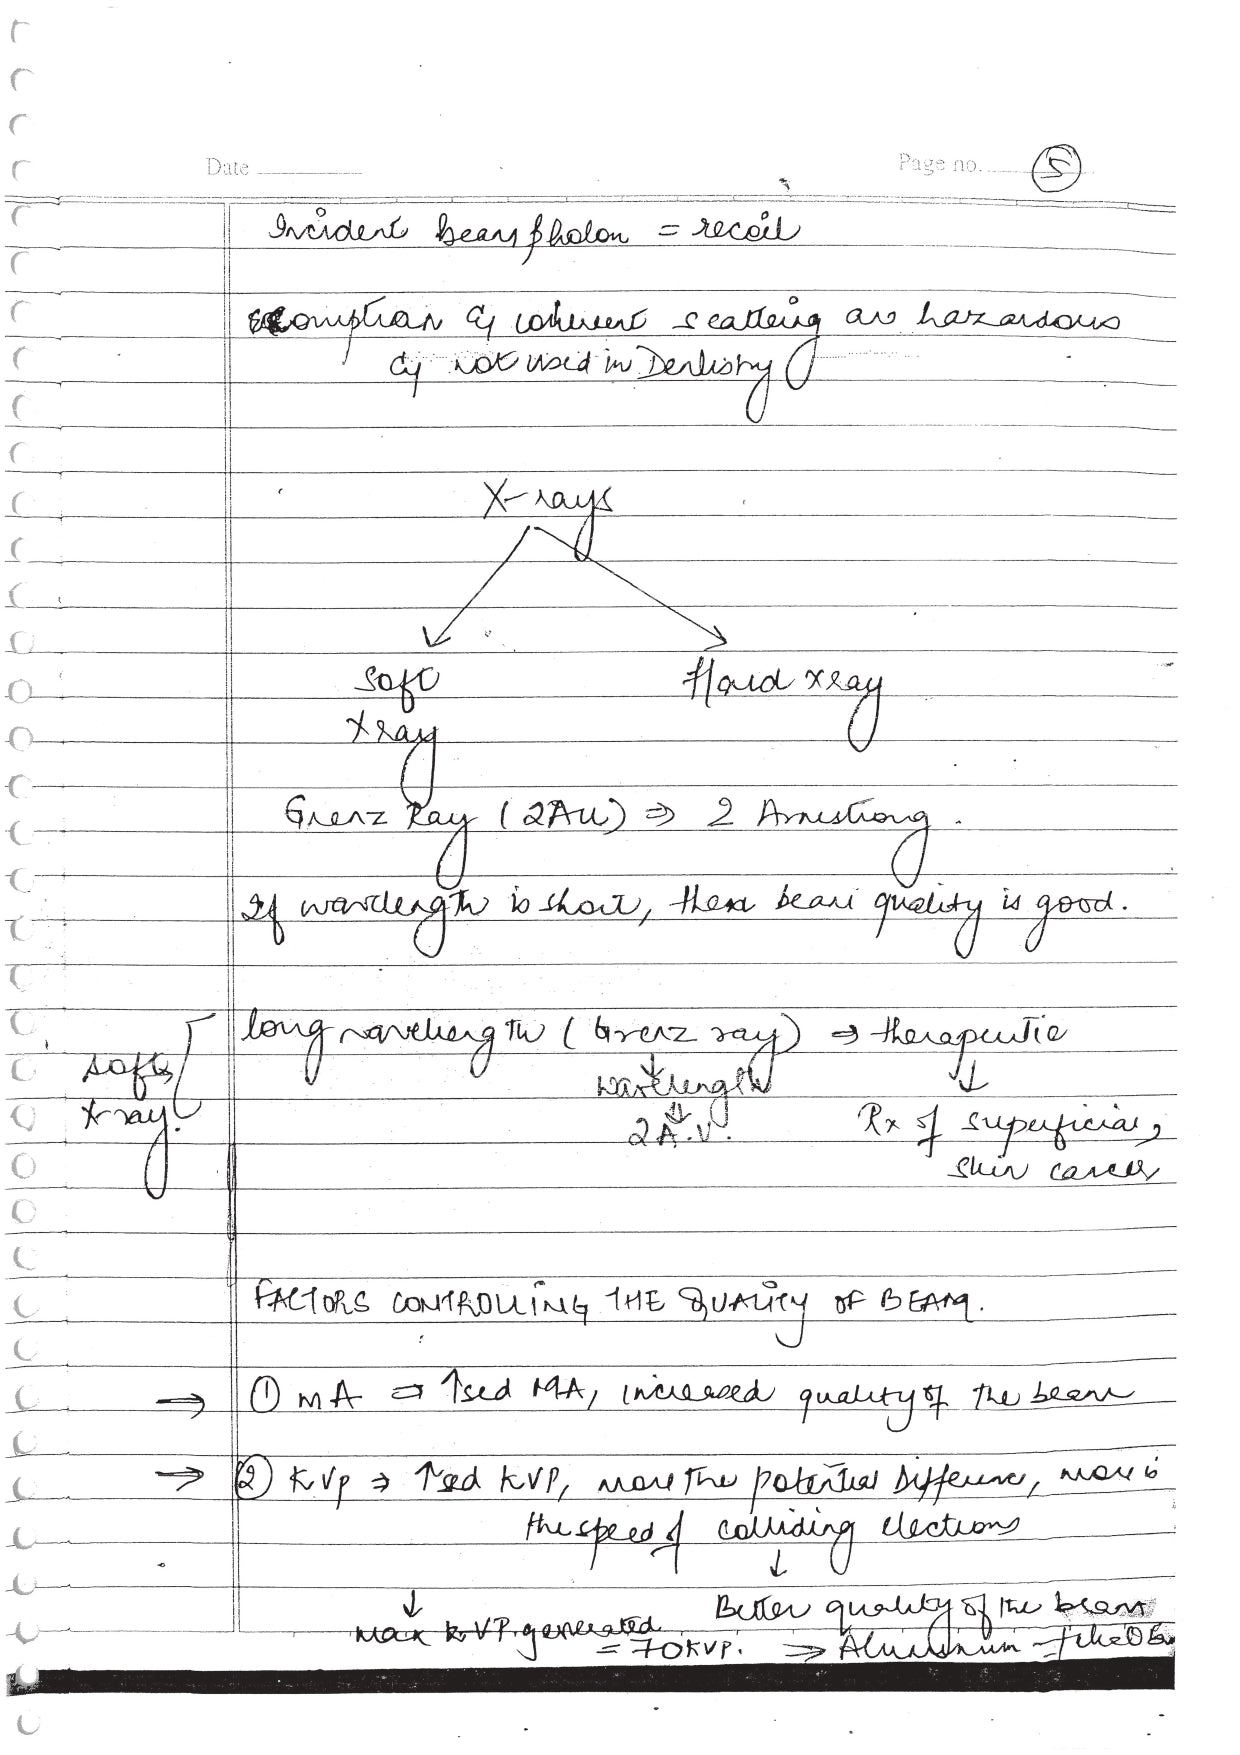 Date
Page no. 5
Incident beam photon = recoil
Comptran & coherent scattering are hazardous
& not used in Dentistry
X-rays
Soft Hard xray
Xray
Grenz Ray (2AU) ⇒ 2 Amestrong.
If wavelength is short, then beam quality is good.
long wavelength (Grenz ray) ⇒ therapeutic
soft
X-ray
↓ wavelength ↓
↓ 2A.U. Rx of superficial,
skin cancer
FACTORS CONTROLLING THE QUALITY OF BEAM.
→ ① mA ⇒ ↑sed MA, increased quality of the beam
→ ② KVp ⇒ ↑sed KVP, more the potential Difference, more is
the speed of colliding electrons
↓
↓ Better quality of the beam
max KVP generated
= 70KVP. ⇒ Aluminum